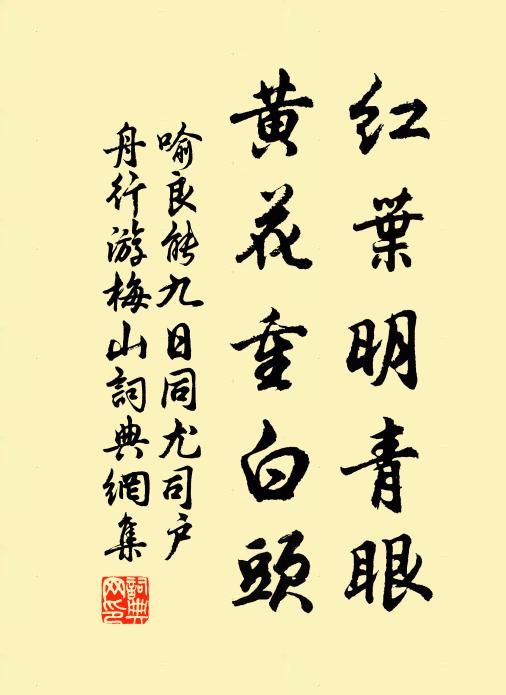 红葉明青眼
黄花重白頭
喻良能九日同尤司户
舟行游梅山詞典網集
詞典网印